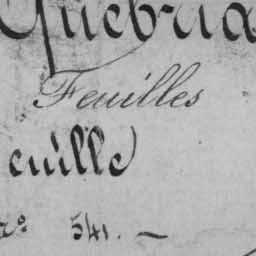 Quebria
Feuilles
euille
No 541. —